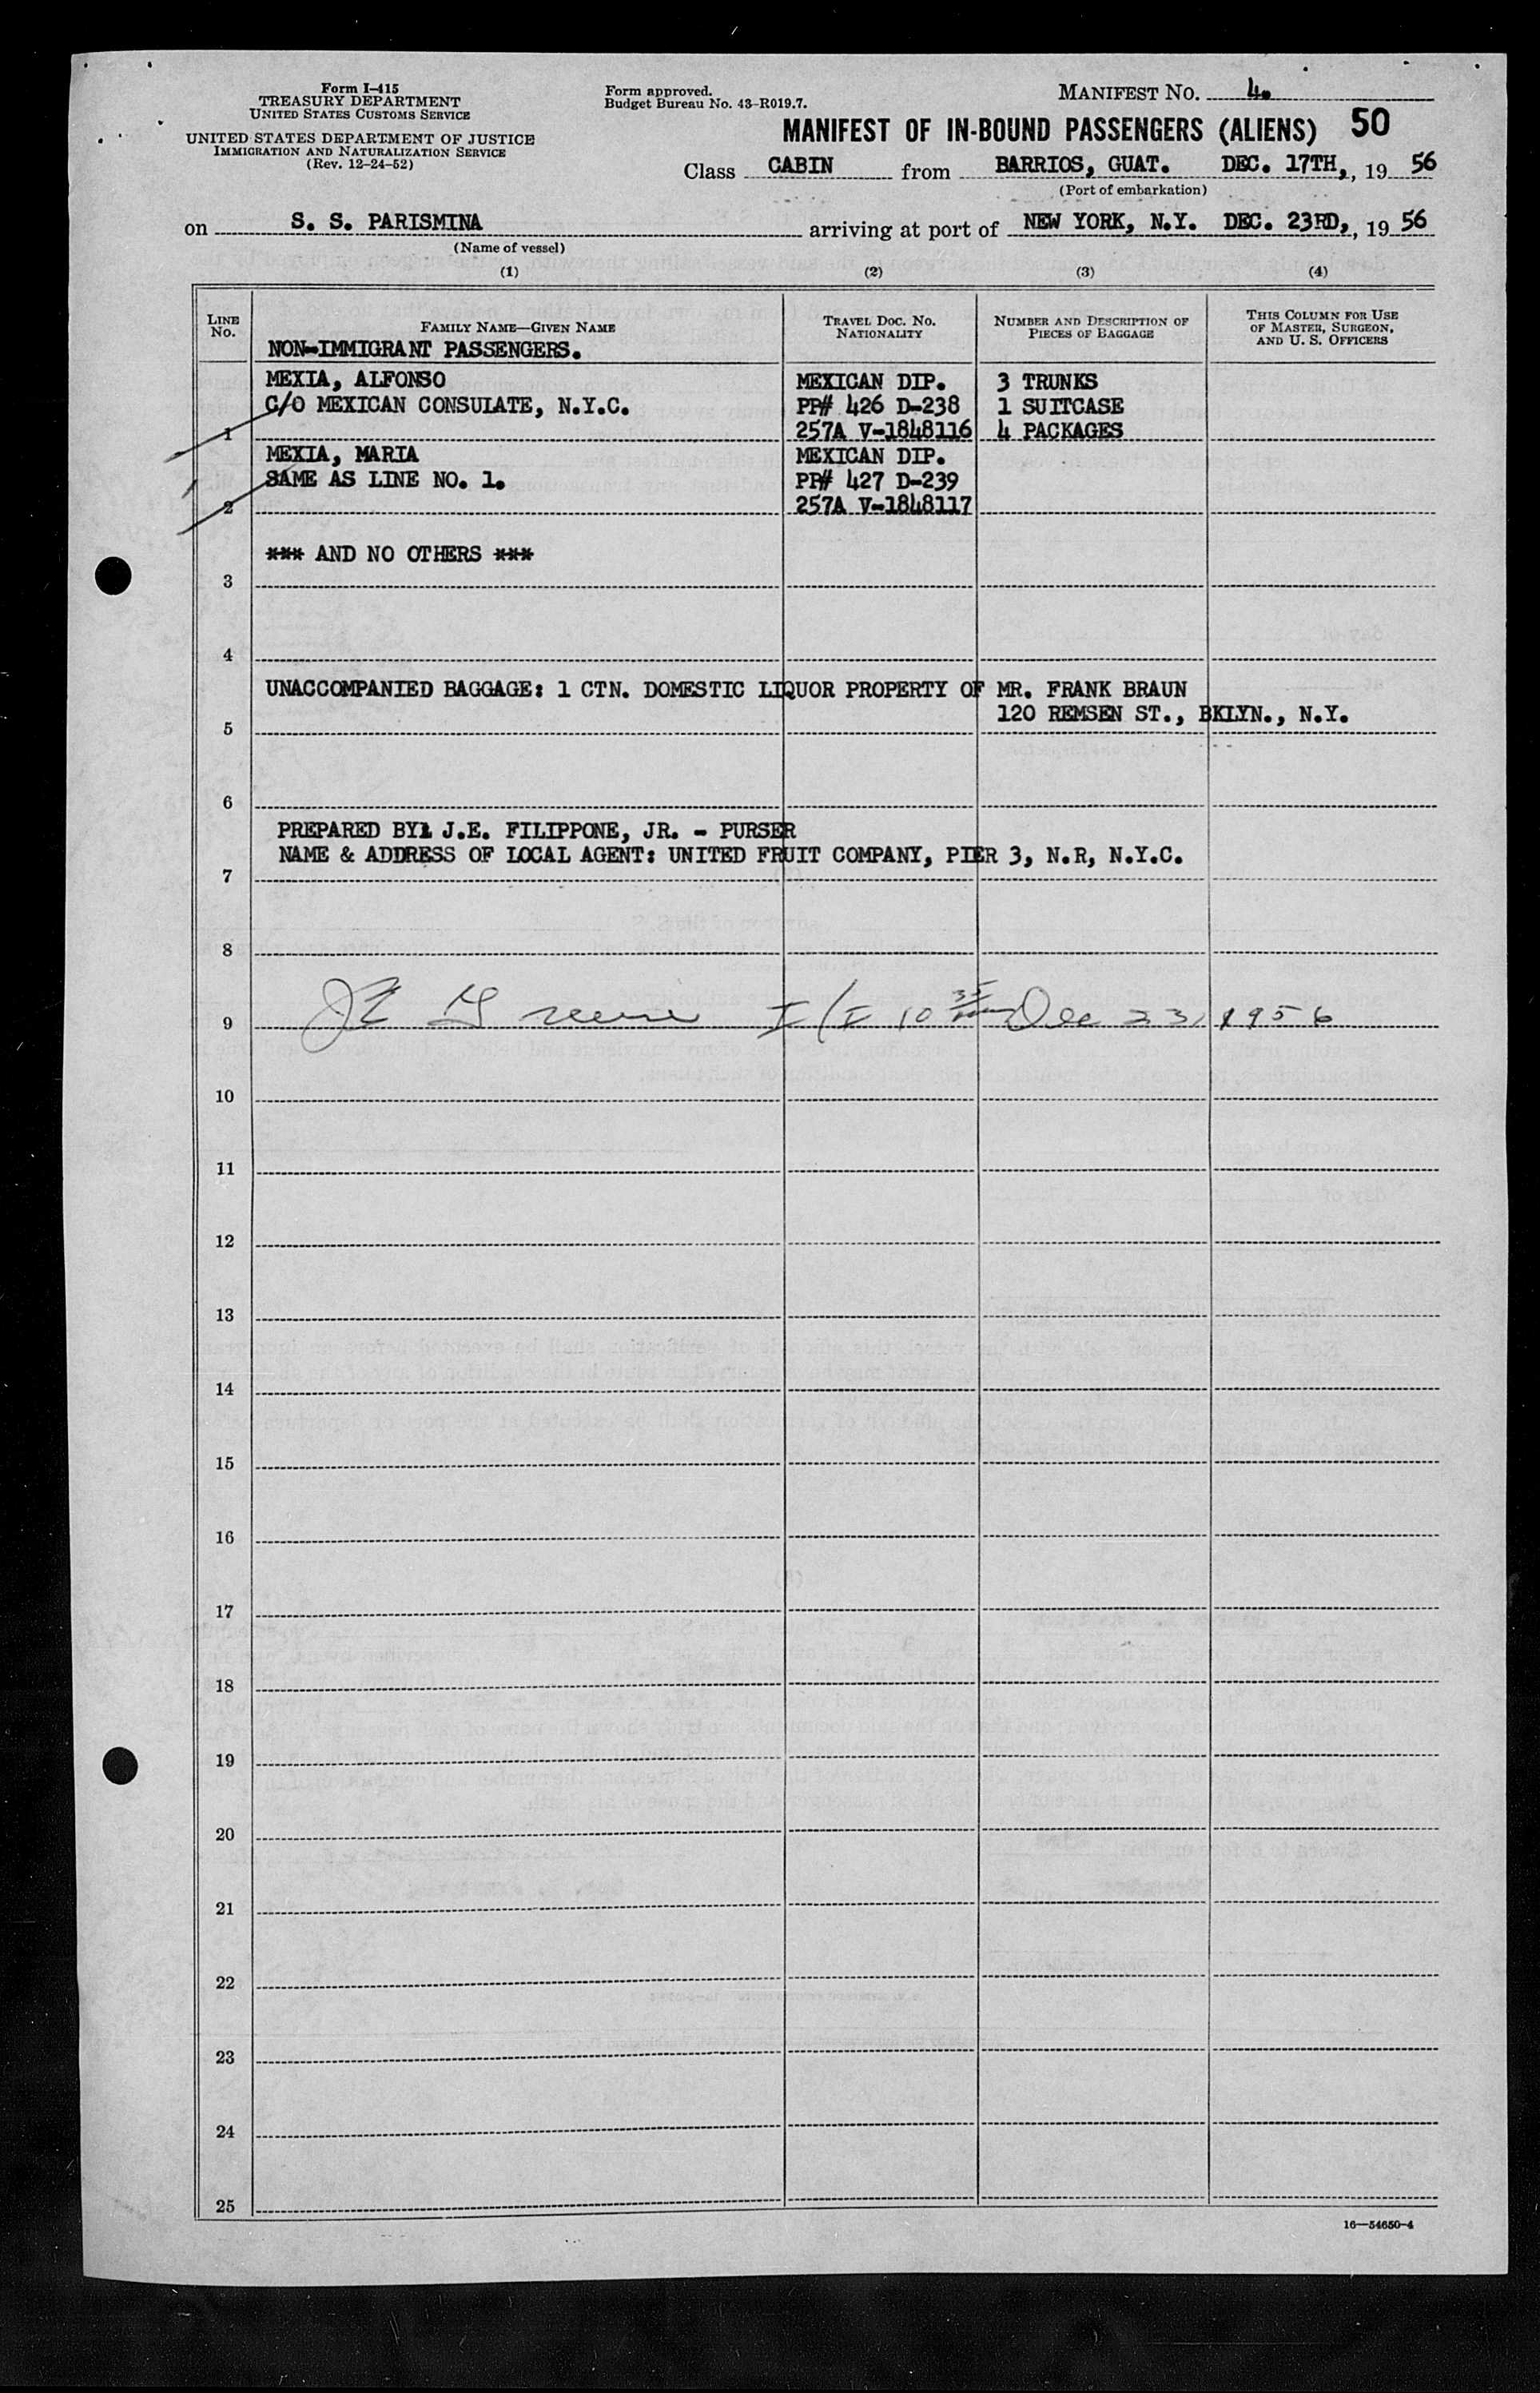 Form I-415
TREASURY DEPARTMENT
UNITED STATES CUSTOMS SERVICE
UNITED STATES DEPARTMENT OF JUSTICE
IMMIGRATION AND NATURALIZATION SERVICE
(Rev. 12-24-52)
Form approved.
Budget Bureau No. 43-R019.7.
MANIFEST NO. 4.
MANIFEST OF IN-BOUND PASSENGERS (ALIENS) 50
Class CABIN from BARRIOS, GUAT. DEC. 17TH, , 19 56
(Port of embarkation)
on S. S. PARISMINA arriving at port of NEW YORK, N.Y. DEC. 23RD, , 19 56
(Name of vessel)
(1) (2) (3) (4)
LINE NO. FAMILY NAME—GIVEN NAME TRAVEL DOC. NO. NATIONALITY NUMBER AND DESCRIPTION OF PIECES OF BAGGAGE THIS COLUMN FOR USE OF MASTER, SURGEON, AND U. S. OFFICERS
NON-IMMIGRANT PASSENGERS.
MEXIA, ALFONSO MEXICAN DIP. 3 TRUNKS
C/O MEXICAN CONSULATE, N.Y.C. PP# 426 D-238 1 SUITCASE
1 257A V-1848116 4 PACKAGES
MEXIA, MARIA MEXICAN DIP.
SAME AS LINE NO. 1. PP# 427 D-239
2 257A V-1848117
*** AND NO OTHERS ***
3
4
UNACCOMPANIED BAGGAGE: 1 CTN. DOMESTIC LIQUOR PROPERTY OF MR. FRANK BRAUN
120 REMSEN ST., BKLYN., N.Y.
5
6
PREPARED BY: J.E. FILIPPONE, JR. - PURSER
NAME & ADDRESS OF LOCAL AGENT: UNITED FRUIT COMPANY, PIER 3, N.R, N.Y.C.
7
8
9 I/I 10 35 Dec 23, 1956
10
11
12
13
14
15
16
17
18
19
20
21
22
23
24
25
16—54650-4